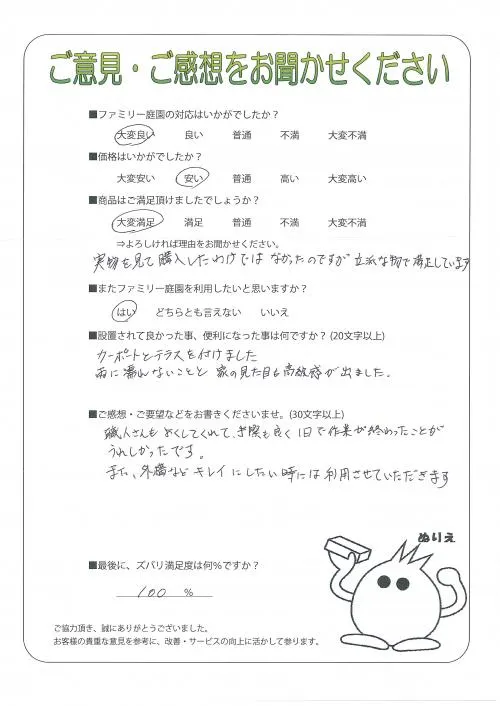 ご意見・ご感想をお聞かせください
■ファミリー庭園の対応はいかがでしたか?
大変良い 良い 普通 不満 大変不満
■価格はいかがでしたか?
大変安い 安い 普通 高い 大変高い
■商品はご満足頂けましたでしょうか?
大変満足 満足 普通 不満 大変不満
⇒よろしければ理由をお聞かせください。
実物を見て購入したわけではなかったのですが立派な物で満足しています
■またファミリー庭園を利用したいと思いますか?
はい どちらとも言えない いいえ
■設置されて良かった事、便利になった事は何ですか? (20文字以上)
カーポートとテラスを付けました
雨に濡れないことと 家の見た目も高級感が出ました。
■ご感想・ご要望などをお書きくださいませ。(30文字以上)
職人さんもよくしてくれて、手際も良く1日で作業が終わったことが
うれしかったです。
また、外構などキレイにしたい時には利用させていただきます
ぬりえ
■最後に、ズバリ満足度は何%ですか?
100 %
ご協力頂き、誠にありがとうございました。
お客様の貴重な意見を参考に、改善・サービスの向上に活かして参ります。